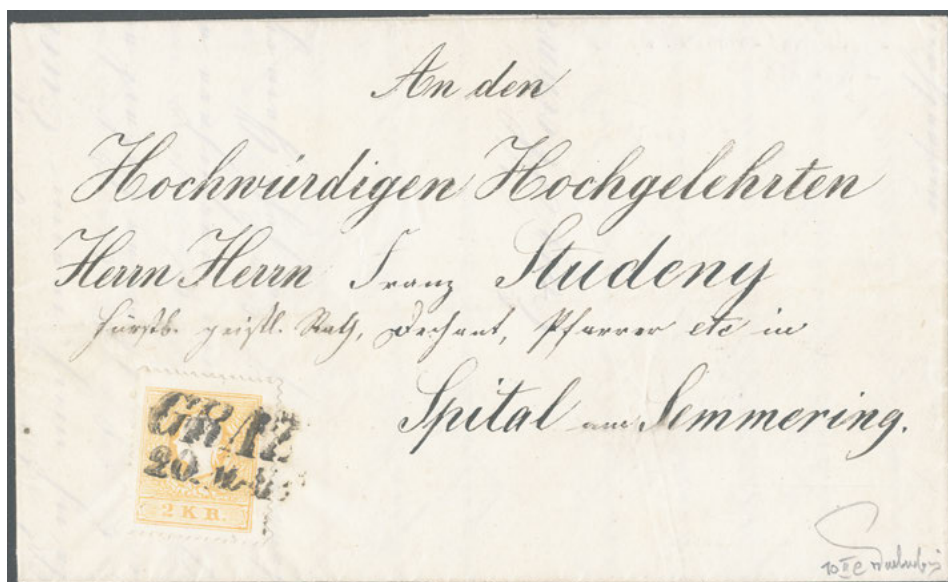 An den
Hochwürdigen Hochgelehrten
Herrn Herrn Franz Studeny
Fürstb. geistl. Rath, Dechant, Pfarrer etc in
Spital am Semmering.
GRAZ
20.
2 KR.